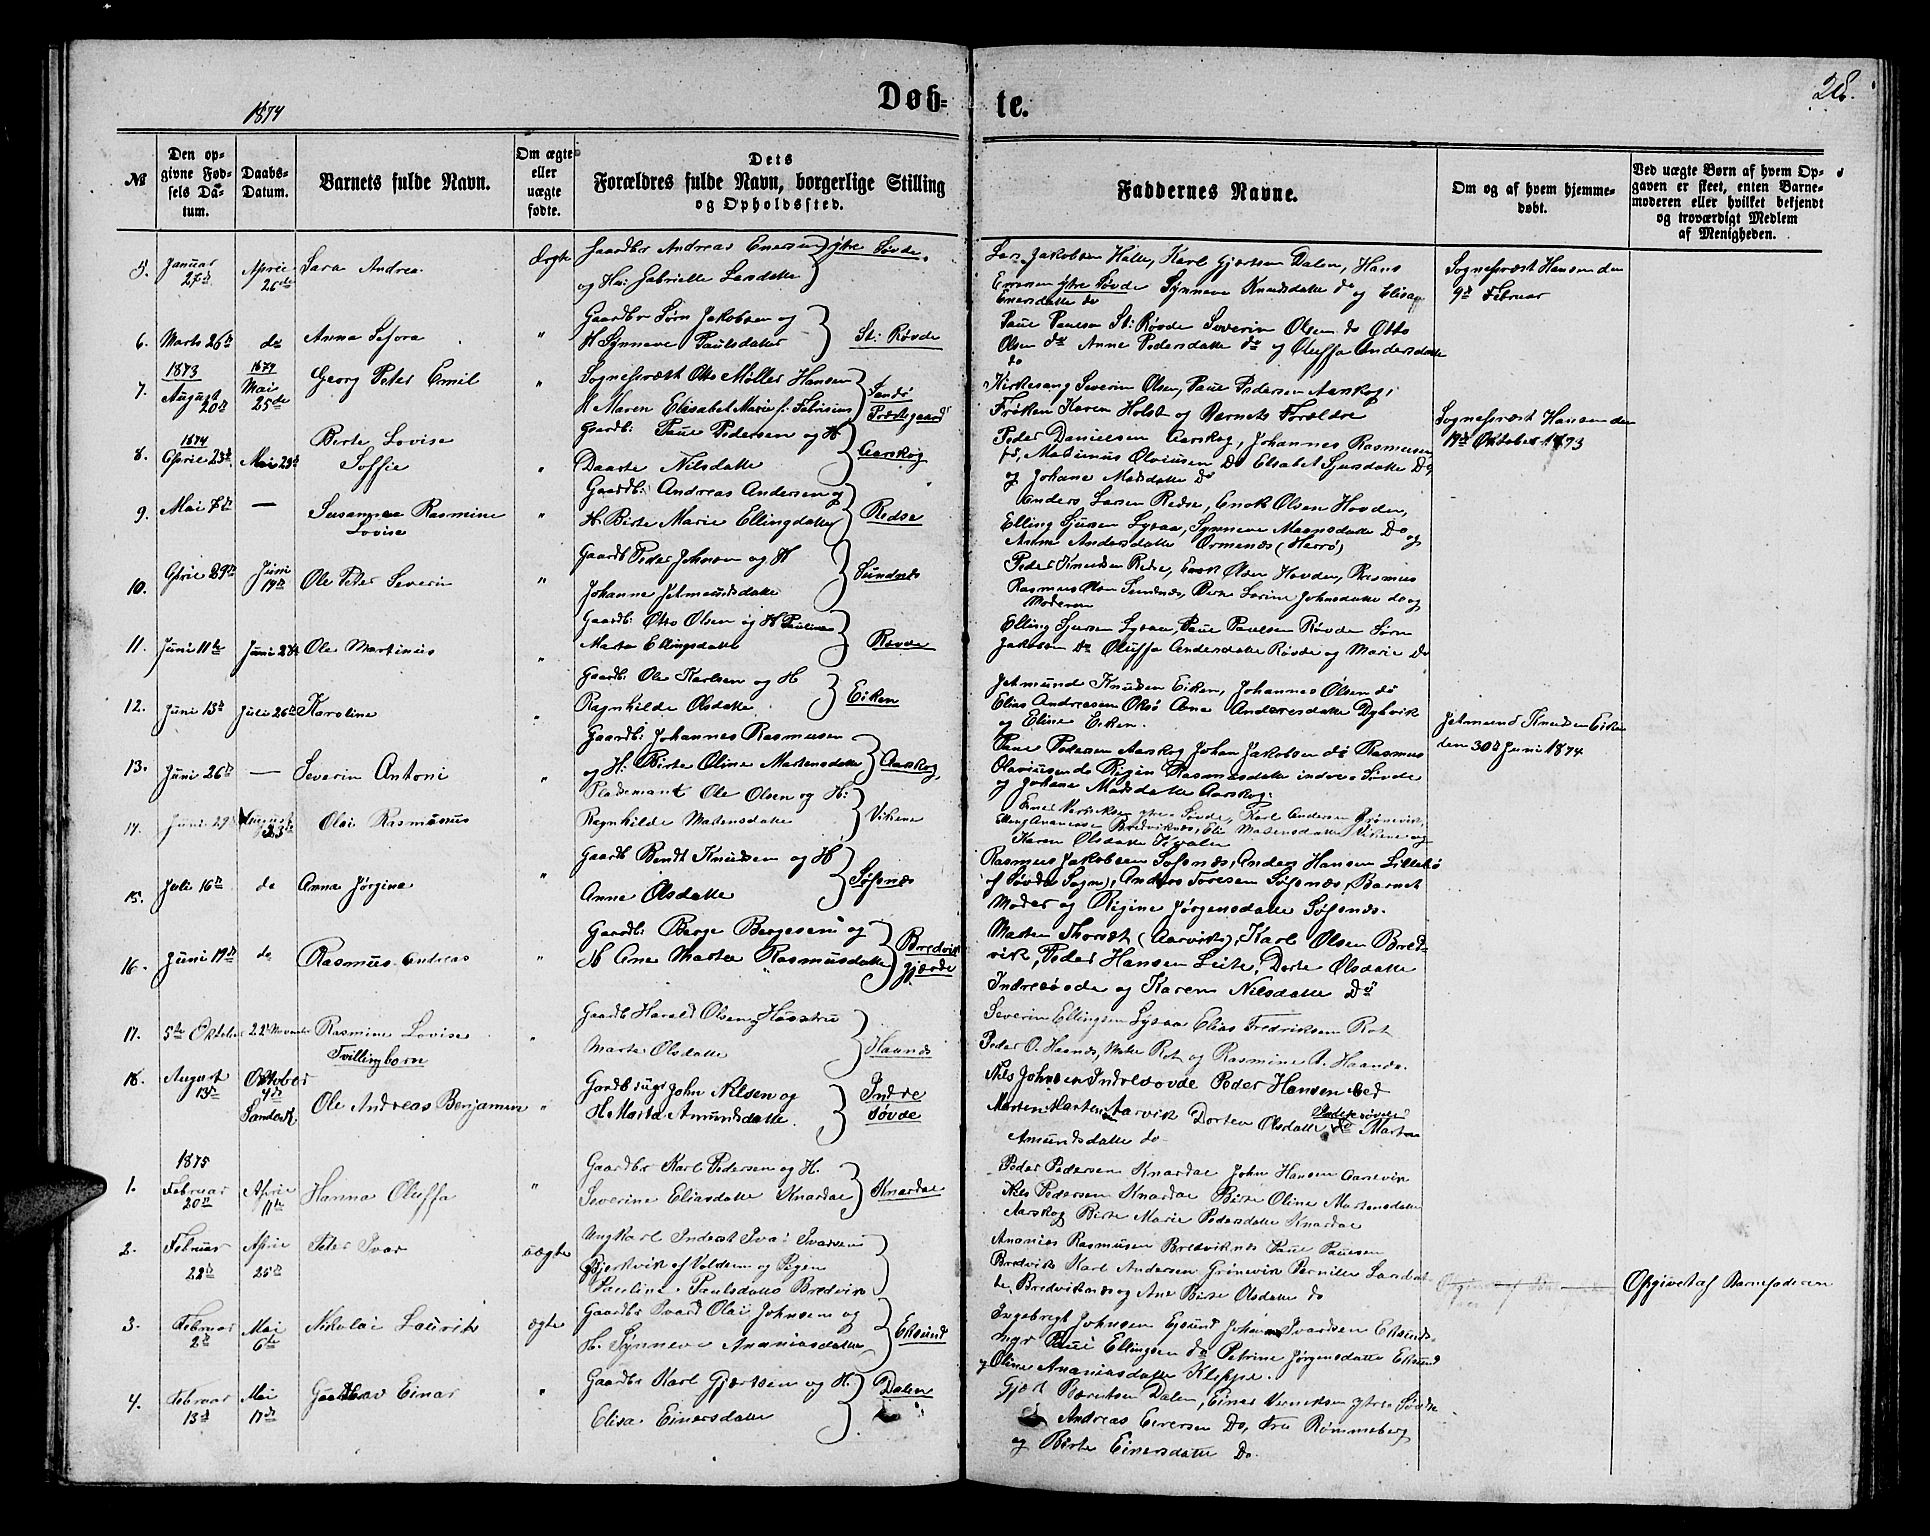 1874
Døb-
te.
28.
№
Den opgivne Fødsels Datum.
Daabs-Datum.
Barnets fulde Navn.
Om ægte eller uægte fødte.
Dets Forældres fulde Navn, borgerlige Stilling og Opholdssted.
Faddernes Navne.
Om og af hvem hjemmedøbt.
Ved uægte Børn af hvem Opgaven er skeet, enten Barnemoderen eller hvilket bekjendt og troværdigt Medlem af Menigheden.
5. Januar 27de April 26de Sara Andrea Ægte
Gaardbr Andreas Enersen ytre Søvde
og H: Gabrielle Larsdatte
Lars Jakobsen Halle, Karl Gjærtsen Dalen, Hans
Enersen ytre Søvde Synneve Knudsdatte do og Elisa
Enersdatte do
Sognepræst Hansen den
9de Februar
6. Marts 26de do Anna Sefora "
Gaardbr Sørn Jakobsen og
H Synneve Paulsdatter St: Røvde
Paul Paulsen St: Røvde Severin Olsen do Otto
Olsen do Anne Pedersdatte do og Oluffa Andersdatte
do
1873 1874
7. August 20de Mai 25de Georg Peter Emil "
Sognepræst Otto Møller Hansen
H Maren Elisabet Marie f: Fabrisius Sandø Præstegaard
Kirkesang: Severin Olsen, Paul Pedersen Aarskog,
Frøken Karen Holst og Barnets Forældre
Sognepræst Hansen den
17de Oktober 1873
1874
8. April 23de Mai 29de Birte Lovise
Soffie "
Gaardb: Paul Pedersen og H
Daarte Nilsdatte Aarskog
Peder Danielsen Aarskog, Johannes Rasmussen
do, Matinus Olviusen Do Elsabet Sjursdatte Do
og Johane Madsdatte Do
9. Mai 7de — Susanna Rasmine
Lovise "
Gaardb: Andreas Andersen og
H Birte Marie Ellingdatte Redse
Anders Larsen Redse, Enok Olsen Hovden,
Elling Sjursen Lysaa, Synneve Maansdatte Do og
Anne Andersdatte Ormenæs (Herrø)
10. April 29de Juni 14de Ole Peter Severin "
Gaardb Peder Johnsen og H
Johanne Jetmundsdatte Sundnæs
Peder Knudsen Redse, Enok Olsen Hovden, Rasmus
Rasmus Olsen Sundnæs, Berte Larine Johnsdatte do og
Moderen
11. Juni 11te Juni 24de Ole Martinus "
Gaardb: Otto Olsen og H Pauline
Marta Ellingsdatte Røvde
Elling Sjursen Lysaa, Paul Paulsen Røvde Sørn
Jakobsen Do Oluffa Andersdatte Røvde og Marie Do
12. Juni 13de Juli 26de Karoline "
Gaardb: Ole Karlsen og H
Ragnhilde Olsdatte Eiken
Jetmund Knudsen Eiken, Johannes Olsen do
Elias Andreasen Oksø Ane Andersdatte Dybvik
og Eline Eiken.
Jetmund Knudsen Eiken
den 30de Juni 1874
13. Juni 26de — Severin Antoni "
Gaardb: Johannes Rasmusen
og H: Birte Oline Martensdatte Aarskog
Paul Pedersen Aarskog Johan Jakobsen do Rasmus
Olaviusen do Regine Rasmusdatte indre Søvde
og Johane Madsdatte Aarskog.
14. Juni 29de August 23de Olai Rasmusus
Pladsmand Ole Olsen og H:
Ragnhilde Madsensdatte Vikene
Karen Olsdatte Kvalen
15. Juli 16de do Anna Jørgine "
Gaardb Bendt Knudsen og H
Anne Olsdatte Søfsnæs
Rasmus Jakobsen Søfsnæs, Anders Hansen Lillebø
af Søvde Sogn), Anders Toresen Søfsnæs, Barnet
Moder og Regine Jørgensdatte Søfsnæs.
16. Juni 19de do Rasmus Andreas "
Gaardb: Berge Bergesen og
H Ane Marta Rasmusdatte Bredvik
gjærde
Marten Thorvæt (Aarvik), Karl Olsen Bred-
vik, Peder Hansen Leite, Dorte Olsdatte
Indresøvde og Karen Nilsdatte Do
17. 5te Oktober 22de November Rasmine Lovise
Tvillingbørn "
Gaardb Harald Olsen og Hustru
Marte Olsdatte Haanæs
Severin Ellingsen Lysaa Elias Fredriksen Rot
Peder O. Haanæs, Rot og Rasmine A. Haanæs.
18. August 13de Oktober 4de Sandeok Ole Andreas Benjamen "
Gardbrugr John Nilsen og
H. Marta Amundsdatte. Indre
Søvde
Nils Johnsen Indresøvde Peder Hansen
Marten Marten Aarvik Dorten Olsdatte do Marten
Amundsdatte do
1875
1. Februar 20de April 11te Hanna Oluffa "
Gaardbr Karl Pedersen og H.
Severine Eliasdatte Knardal Knardal
Peder Pedersen Knardal John Hansen Aarskvik
Nils Pedersen Knardal Birte Oline Martensdatte
Aarskog Birte Marie Pedersdatte Knardal
2. Februar 22de April 25de Peder Ivar uægte
Ungkarl Inderst Ivar Ivarsen
Bjerkvik af Voldsen og Pigen
Pauline Paulsdatte Bredvik
Ananias Rasmusen Bredviknæs Paul Paulsen
Bredvik Karl Andersen Grønevik Pernille Larsdat-
te, Bredviknæs og Ane Birte Olsdatte do
Opgivet af Barnefaderen
3. Februar 2de Mai 6te Nikolai Laurits ægte
Gaardbr Ivard Olai Johnsen og
H. Synneve Ananiasdatte Eksund
Ingebrigt Johnsen Eksund Johan Ivardsen Eksund
myr Paul Ellingsen do Petrine Jørgensdatte Eksund
og Oline Ananiasdatte Kleppe.
4. Februar 13de Mai 17de Gustav Einar "
Gaardbr Karl Gjærtsen og H.
Elisa Einersdatte Dalen
Gjært Berntsen Dalen, Einer Verniksen ytre Søvde
Andreas Enersen Do, Fru Rømmeberg
og Birte Einersdatte Do.